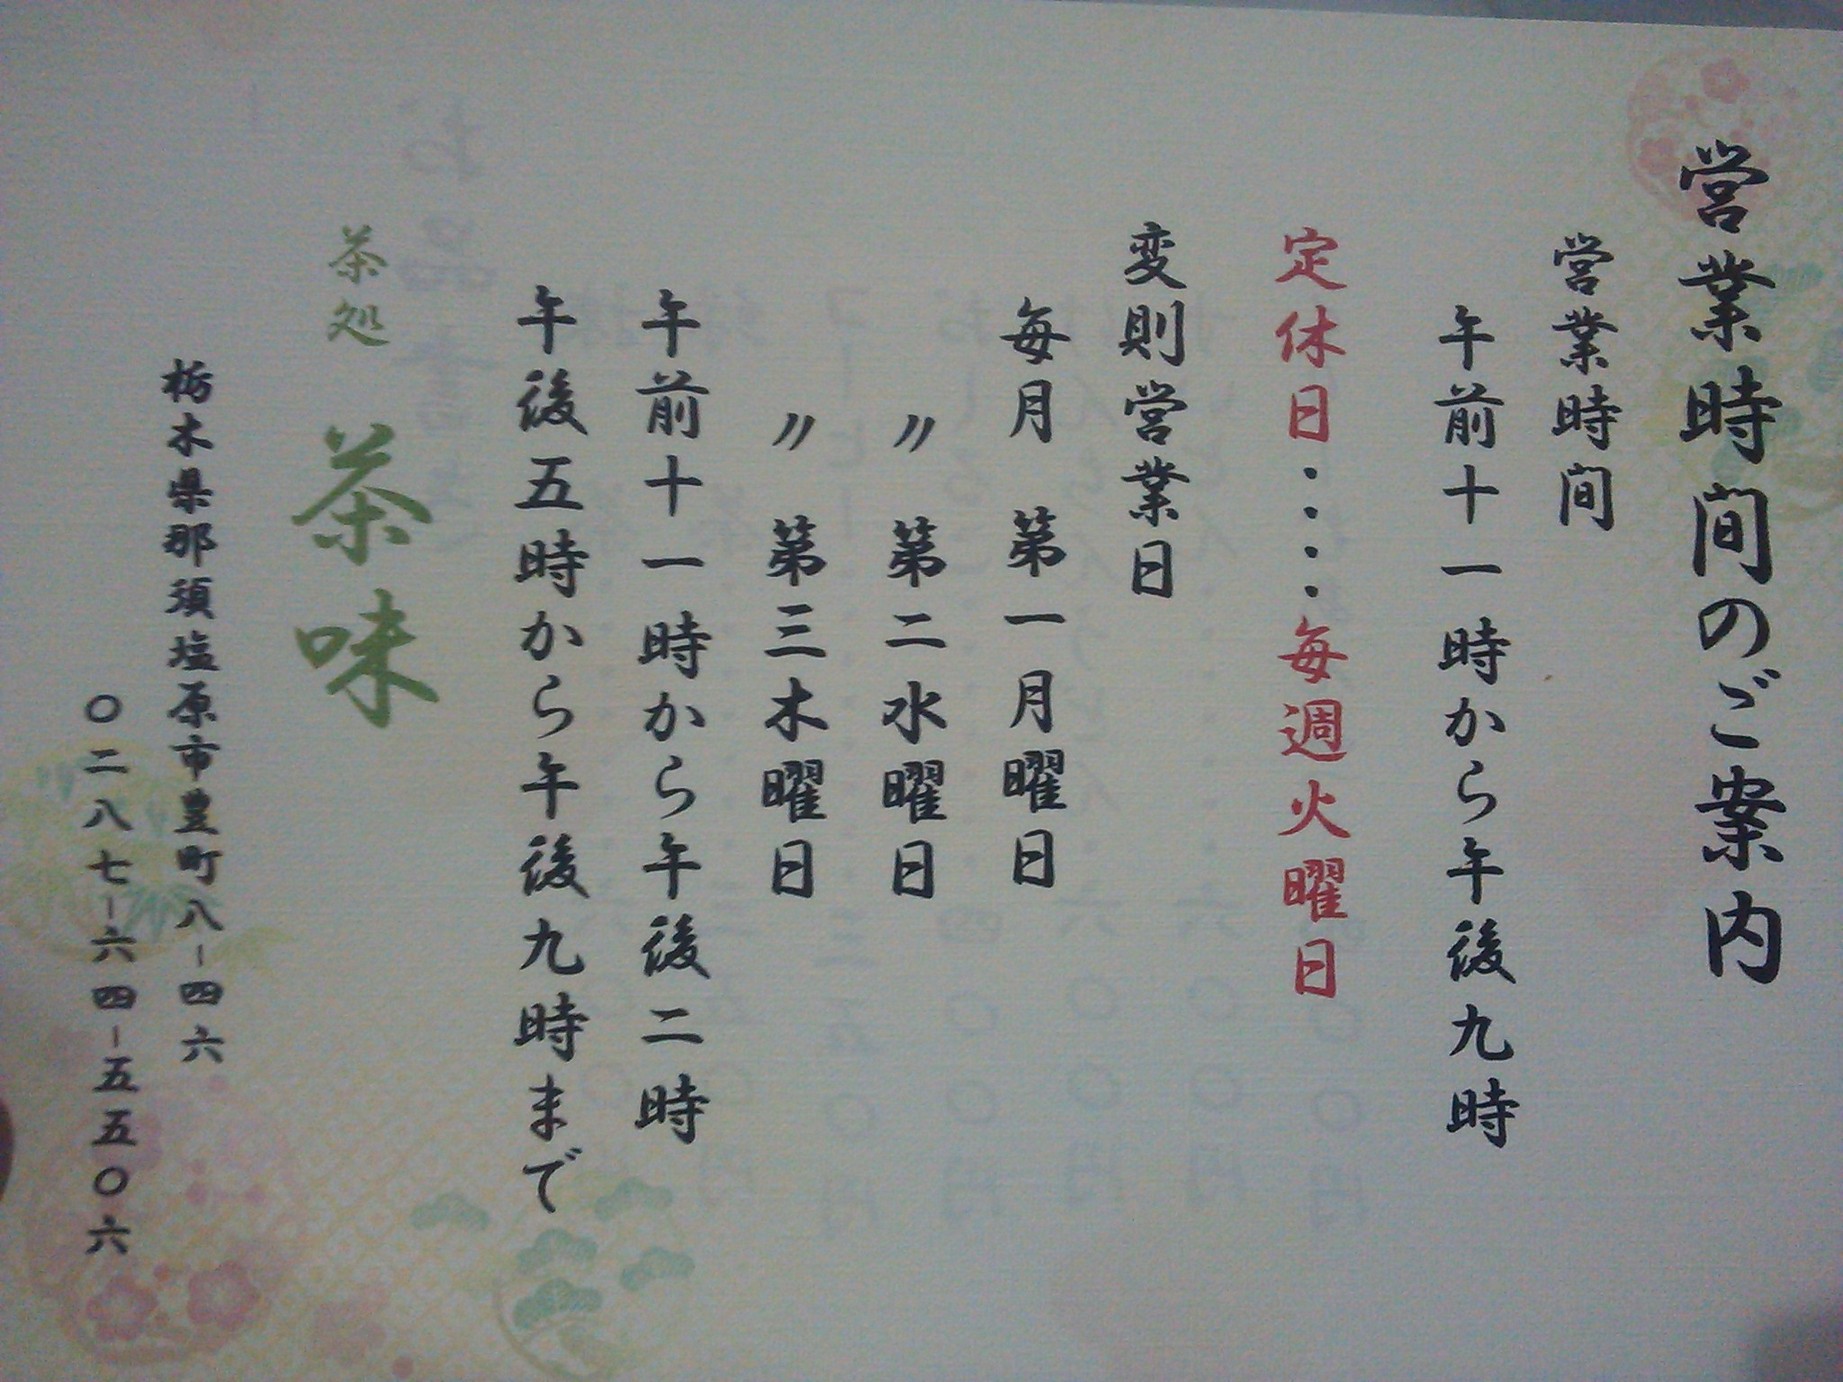 営業時間のご案内
営業時間
午前十一時から午後九時
定休日････毎週火曜日
変則営業日
毎月 第一月曜日
〃 第二水曜日
〃 第三木曜日
午前十一時から午後二時
午後五時から午後九時まで
茶処 茶味
栃木県那須塩原市豊町八-四六
〇二八七-六四-五五〇六